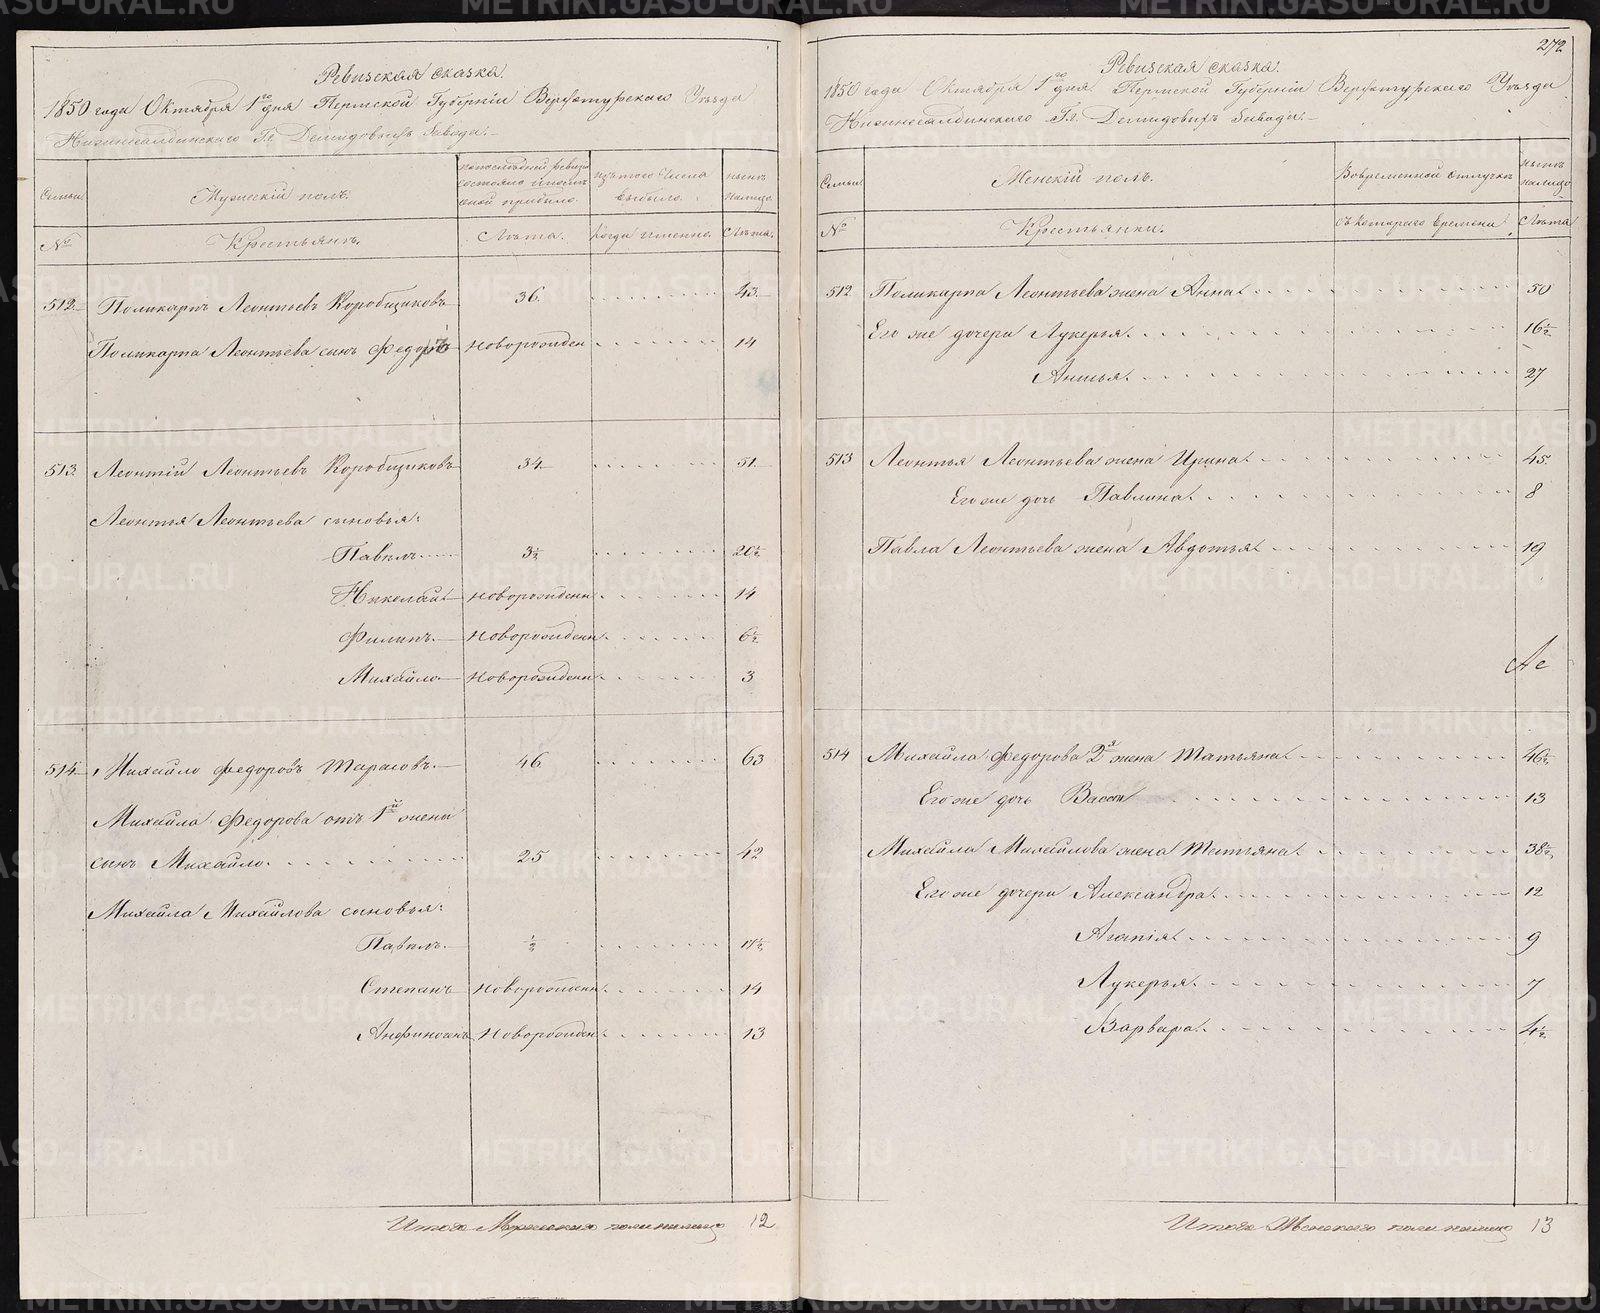 Ревизская сказка.
1850 года Октября 1го дня Пермской Губерніи Верхотурскаго Уѣзда
Нижнесалдинскаго Гг. Демидовыхъ Завода.
Семьи
Мужескій полъ.
По послѣдней ревизіи состояло и послѣ оной прибыло.
Изъ того числа выбыло.
Нынѣ на лицо.
№
Крестьянъ.
Лѣта.
Когда именно.
Лѣта.
512. Поликарпъ Леонтьевъ Коробщиковъ 36. 43.
Поликарпа Леонтьева сынъ Федоръ новорожден 14
513. Леонтій Леонтьевъ Коробщиковъ 34. 51.
Леонтья Леонтьева сыновья:
Павелъ 3½ 20½
Николай новорожденн. 14
Филипъ. новорожденн. 6½
Михайло новорожденн. 3
514 Михайло Федоровъ Тарасовъ. 46 63
Михайла Федорова отъ 1й жены
сынъ Михайло. 25 42
Михайла Михайлова сыновья:
Павелъ. ½ 17½
Степанъ Новорожденн. 14
Анфиногенъ Новорожден. 13
Итого Мужескаго пола на лицо 12
272
Ревизская сказка.
1850 года Октября 1го дня Пермской Губерніи Верхотурскаго Уѣзда
Нижнесалдинскаго Гг. Демидовыхъ Завода.
Семьи
Женскій полъ.
Во временной отлучкѣ
Нынѣ на лицо
№
Крестьянки.
Съ котораго времени
Лѣта
512 Поликарпа Леонтьева жена Анна. 50
Его же дочери Лукерья. 16½
Анисья. 27
513 Леонтья Леонтьева жена Ирина. 45.
Его же дочь Павлина. 8
Павла Леонтьева жена Авдотья. 19
514 Михайла Федорова 2я жена Татьяна. 46½
Его же дочь Васса 13
Михайла Михайлова жена Татьяна. 38½
Его же дочери Александра. 12
Агапія. 9
Лукерья. 7
Варвара. 4½
Итого Женскаго пола на лицо 13
METRIKI.GASO-URAL.RU